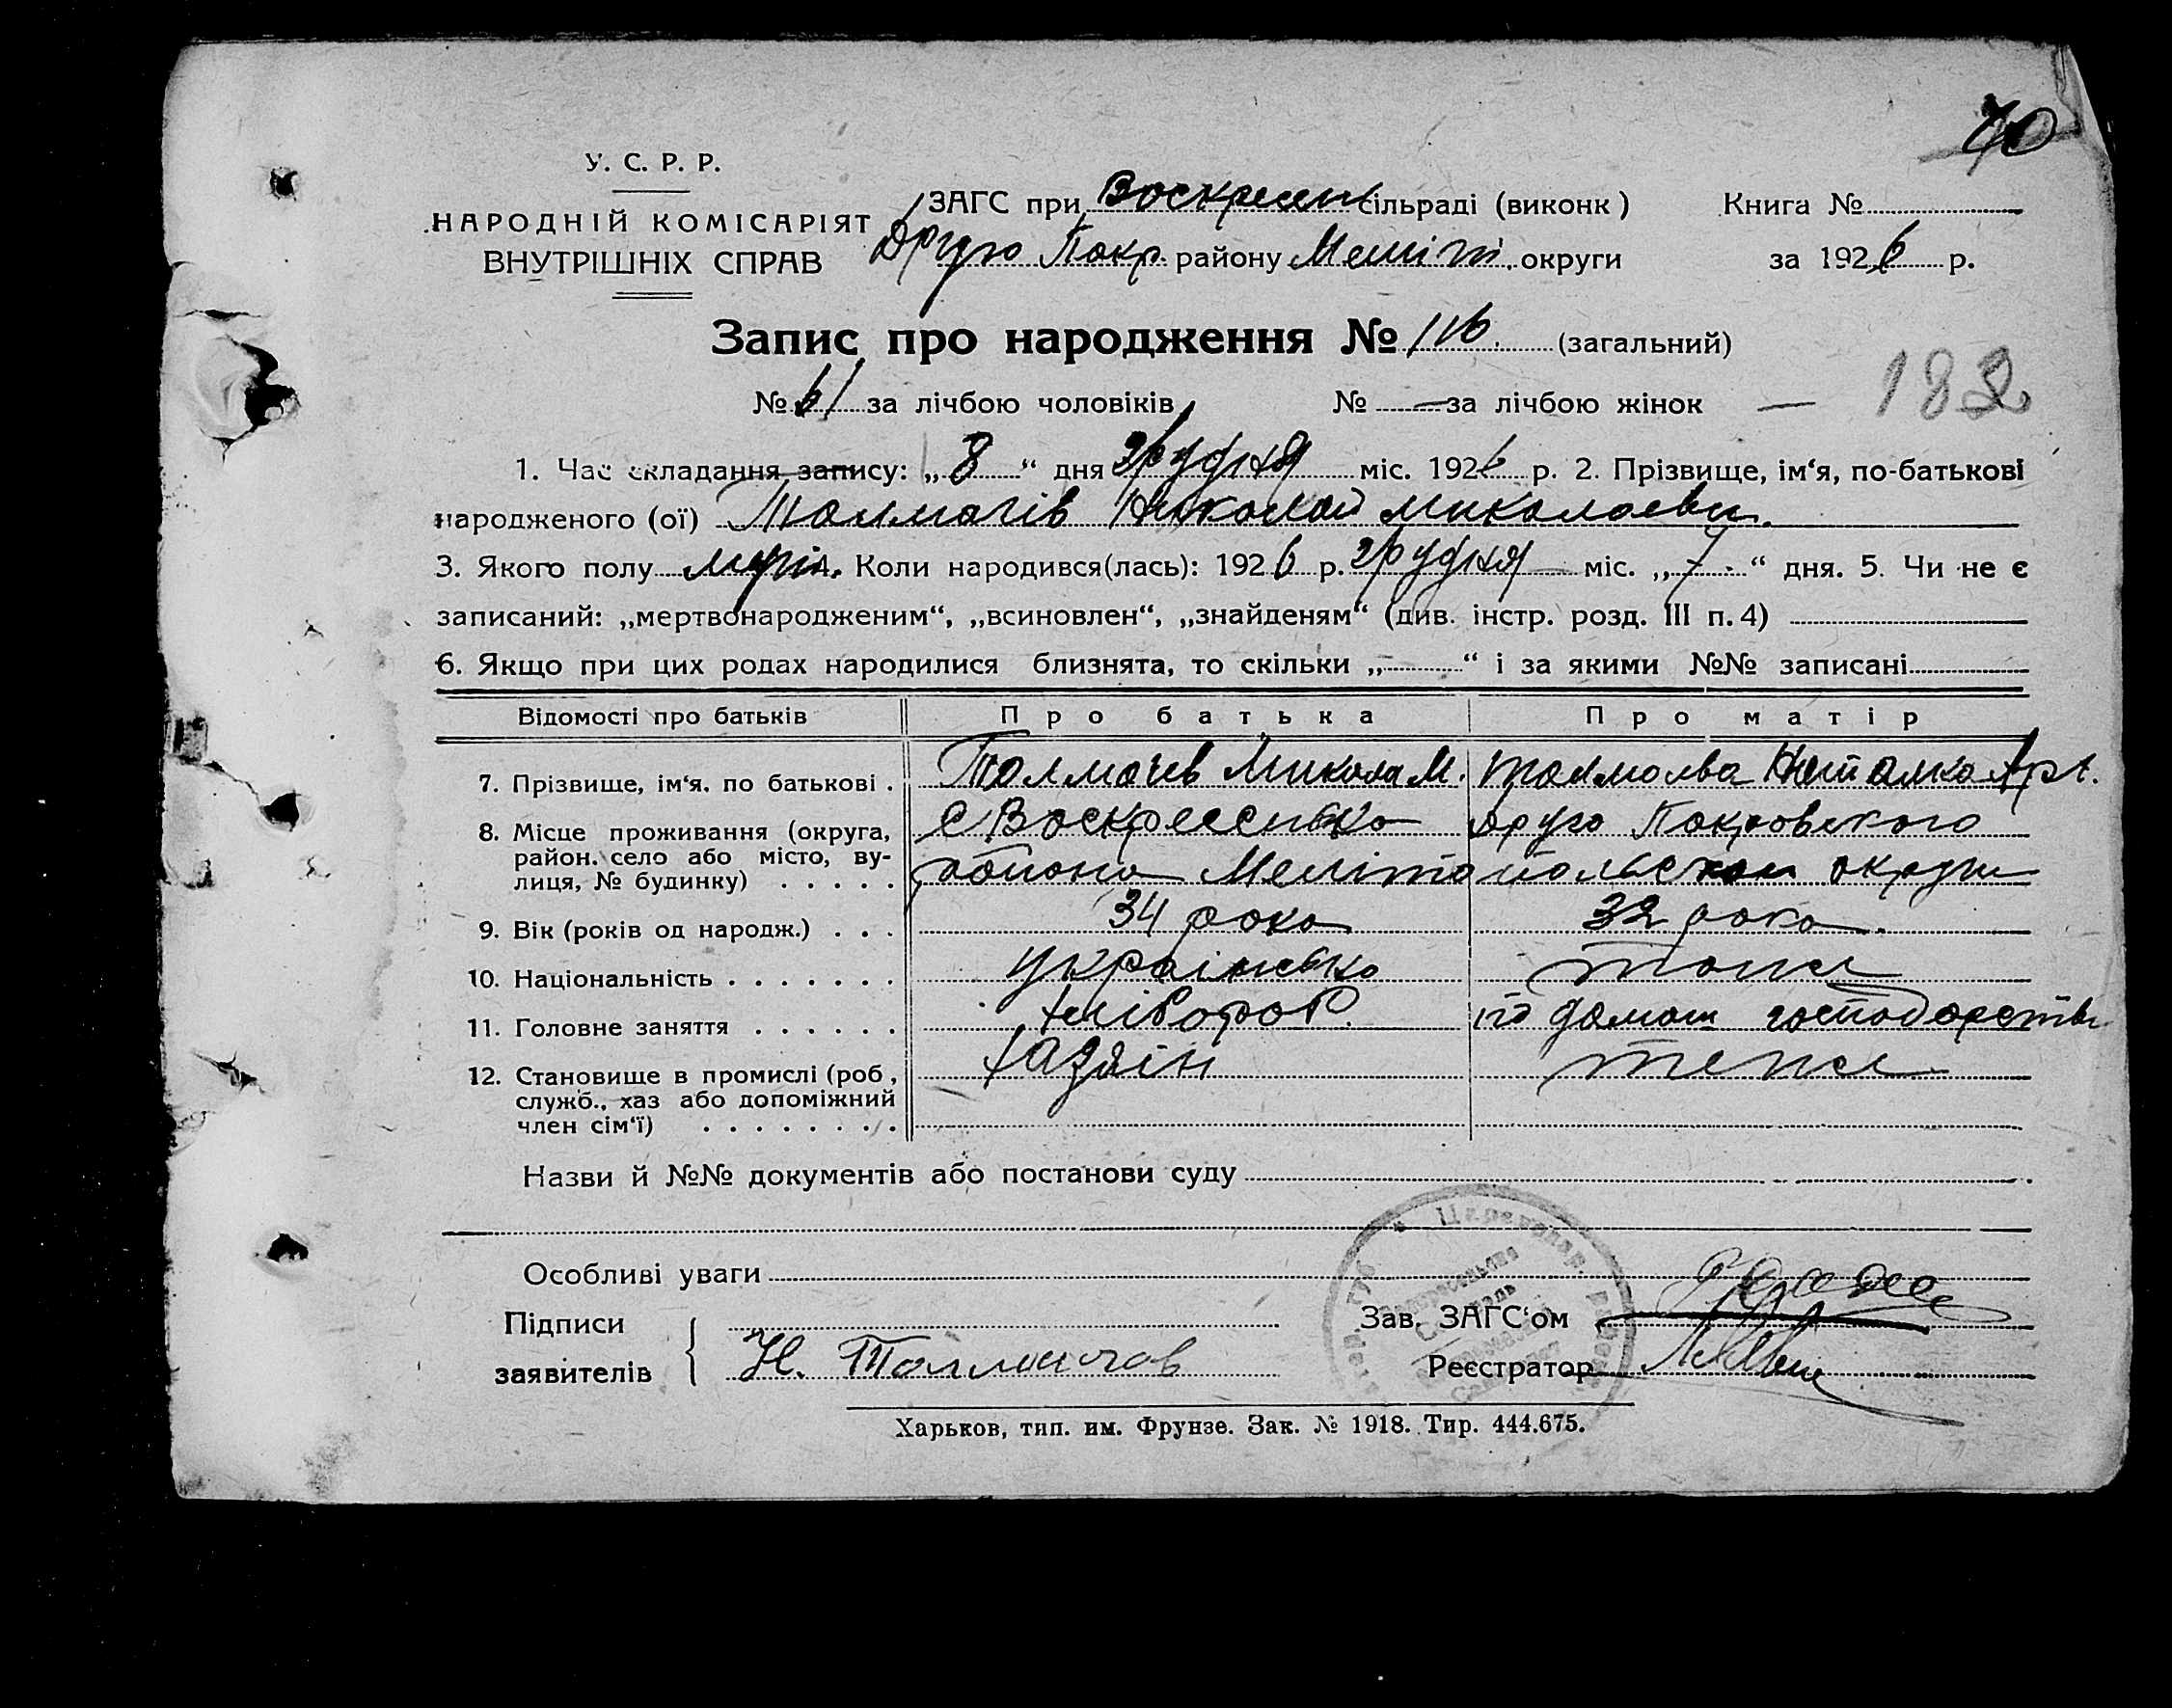 70
У. С. Р. Р.
НАРОДНІЙ КОМІСАРІЯТ
ВНУТРІШНІХ СПРАВ
ЗАГС при Воскресен сільраді (виконк) Книга №
Друго Покр. району Меліт. округи за 1926 р.
Запис про народження № 116 (загальний)
№ 61 за лічбою чоловіків № — за лічбою жінок — 182
1. Час складання запису: „8“ дня грудня міс. 1926 р. 2. Прізвище, ім‘я, по-батькові
народженого (ої) Толмачів Николай Миколаеви.
3. Якого полу 4. Коли народився(лась): 1926 р. грудня міс. „7“ дня. 5. Чи не є
записаний: „мертвонародженим“, „всиновлен“, „знайденям“ (див. інстр. розд. III п. 4)
6. Якщо при цих родах народилися близнята, то скільки „ “ і за якими №№ записані
Відомості про батьків Про батька Про матір
7. Прізвище, ім‘я, по батькові . Толмачев Микола М.
8. Місце проживання (округа, район. село або місто, вулиця, № будинку) с Воскресенька Друго Покровского
района Мелітопольской округи
9. Вік (років од народж.) . . . 34 рока 32 рока.
10. Національність . . . . . . . українська
11. Головне заняття . . . . . . хлібороб. по домаш господарстві
12. Становище в промислі (роб, служб., хаз або допоміжний член сім‘ї) . . . . . . . . хазяін
Назви й №№ документів або постанови суду
Особливі уваги
Підписи
заявителів Н. Толмачов
Зав. ЗАГС‘ом
Реєстратор
Харьков, тип. им. Фрунзе. Зак. № 1918. Тир. 444.675.